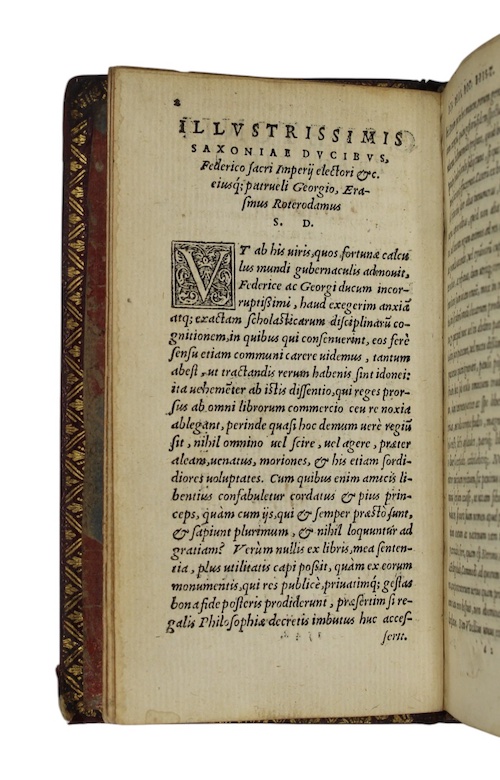 2
ILLVSTRISSIMIS
SAXONIAE DVCIBVS,
Federico sacri Imperij electori &c.
eiusq́; patrueli Georgio, Era-
smus Roterodamus
S. D.
VT ab his uiris, quos fortunæ calcu
lus mundi gubernaculis admouit,
Federice ac Georgi ducum incor-
ruptißimi, haud exegerim anxiā
atq; exactam scholasticarum disciplinarū co-
gnitionem, in quibus qui consenuerint, eos ferè
sensu etiam communi carere uidemus, tantum
abest, ut tractandis rerum habenis sint idonei:
ita uehemēter ab istis dissentio, qui reges pror-
sus ab omni librorum commercio ceu re noxia
ablegant, perinde quasi hoc demum uerè regiū
sit, nihil omnino uel scire, uel agere, præter
aleam, uenatus, moriones, & his etiam sordi-
diores uoluptates. Cum quibus enim amicis li-
bentius confabuletur cordatus & pius prin-
ceps, quàm cum ijs, qui & semper præstò sunt,
& sapiunt plurimum, & nihil loquuntur ad
gratiam? Verùm nullis ex libris, mea senten-
tia, plus utilitatis capi poßit, quàm ex eorum
monumentis, qui res publicè, priuatimq́; gestas
bona fide posteris prodiderunt, præsertim si re-
galis Philosophiæ decretis imbutus huc acces-
serit.